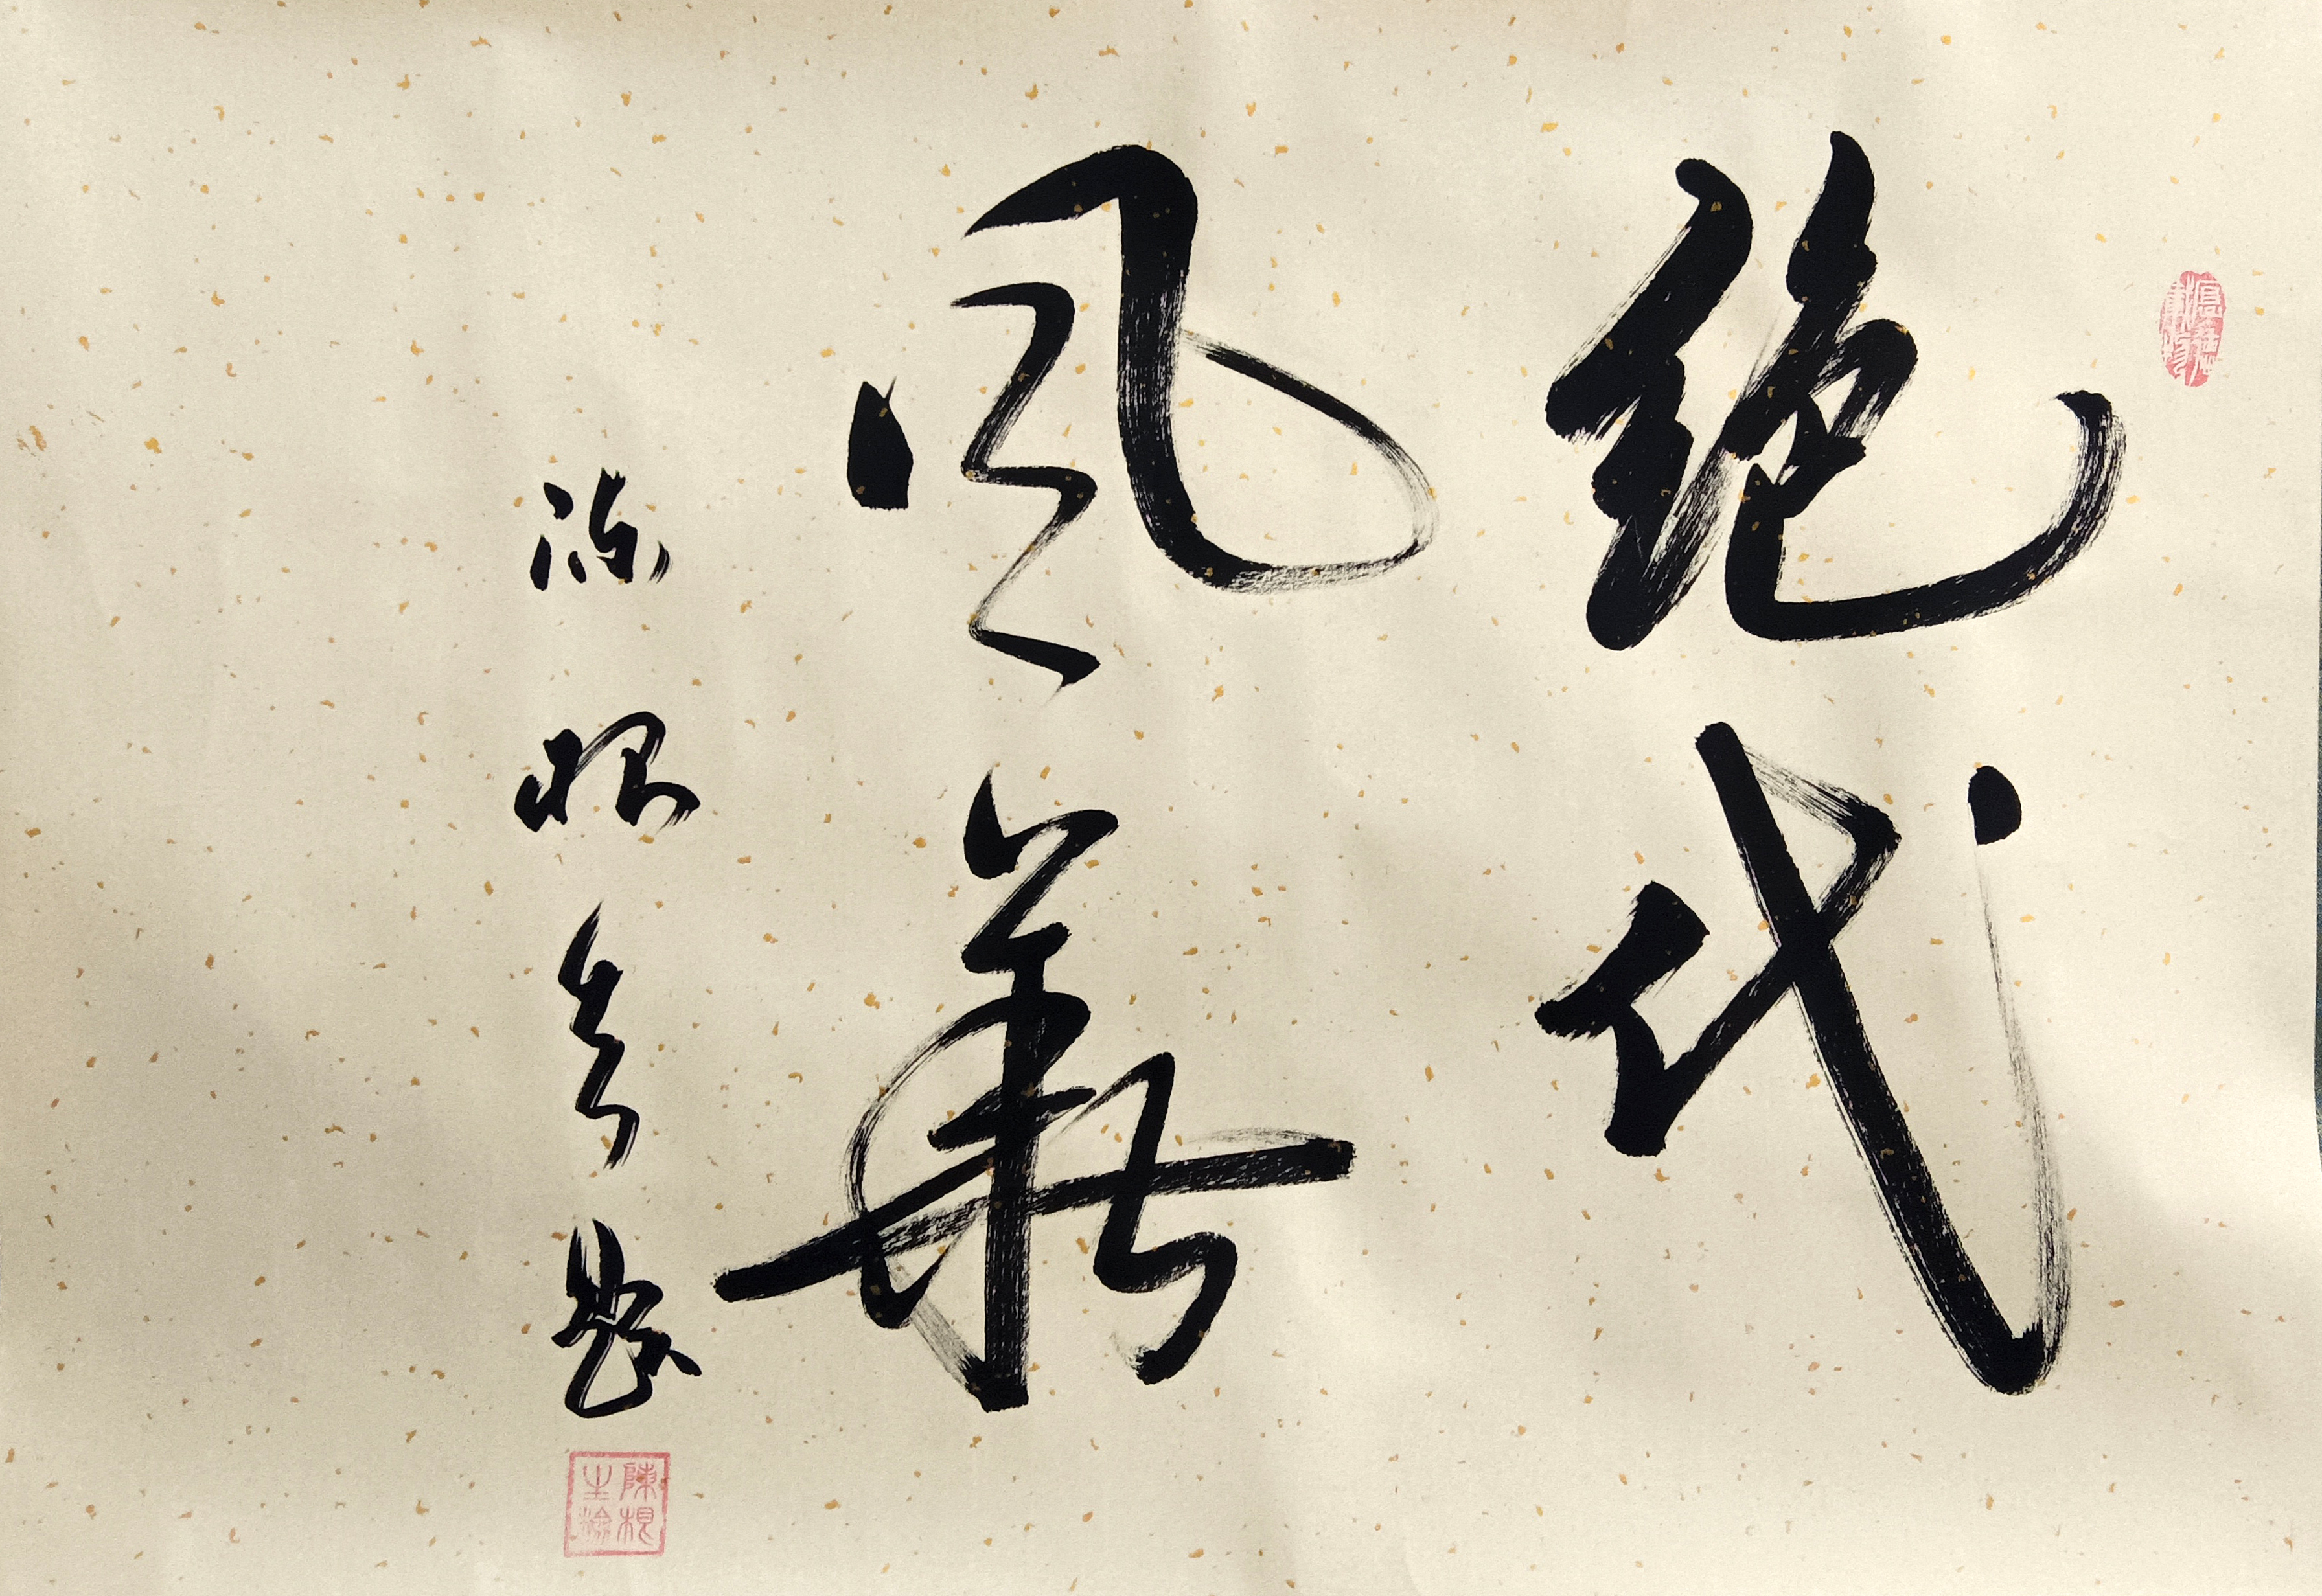 絕代
風華
陳根生題